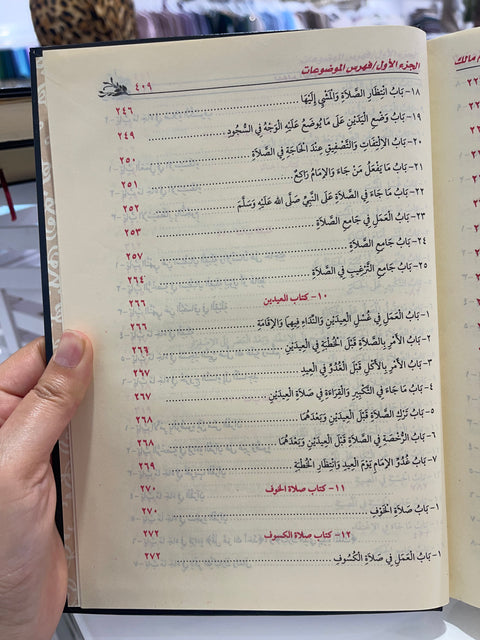 الجزء الأول/فهرس الموضوعات ٤٠٩
١٨- بَابُ انْتِظَارِ الصَّلَاةِ وَالْمَشْيِ إِلَيْهَا ٢٤٦
١٩- بَابُ وَضْعِ الْيَدَيْنِ عَلَى مَا يُوضَعُ عَلَيْهِ الْوَجْهُ فِي السُّجُودِ ٢٤٩
٢٠- بَابُ الالْتِفَاتِ وَالتَّصْفِيقِ عِنْدَ الْحَاجَةِ فِي الصَّلَاةِ ٢٥٠
٢١- بَابُ مَا يَفْعَلُ مَنْ جَاءَ وَالإِمَامُ رَاكِعٌ ٢٥١
٢٢- بَابُ مَا جَاءَ فِي الصَّلَاةِ عَلَى النَّبِيِّ صَلَّى الله عَلَيْهِ وَسَلَّمَ ٢٥٢
٢٣- بَابُ الْعَمَلِ فِي جَامِعِ الصَّلَاةِ ٢٥٣
٢٤- بَابُ جَامِعِ الصَّلَاةِ ٢٥٧
٢٥- بَابُ جَامِعِ التَّرْغِيبِ فِي الصَّلَاةِ ٢٦٤
١٠- كتاب العيدين ٢٦٦
١- بَابُ الْعَمَلِ فِي غُسْلِ الْعِيدَيْنِ وَالنِّدَاءِ فِيهِمَا وَالإِقَامَةِ ٢٦٦
٢- بَابُ الأَمْرِ بِالصَّلَاةِ قَبْلَ الْخُطْبَةِ فِي الْعِيدَيْنِ ٢٦٦
٣- بَابُ الأَمْرِ بِالأَكْلِ قَبْلَ الْغُدُوِّ فِي الْعِيدِ ٢٦٧
٤- بَابُ مَا جَاءَ فِي التَّكْبِيرِ وَالْقِرَاءَةِ فِي صَلَاةِ الْعِيدَيْنِ ٢٦٧
٥- بَابُ تَرْكِ الصَّلَاةِ قَبْلَ الْعِيدَيْنِ وَبَعْدَهُمَا ٢٦٨
٦- بَابُ الرُّخْصَةِ فِي الصَّلَاةِ قَبْلَ الْعِيدَيْنِ وَبَعْدَهُمَا ٢٦٨
٧- بَابُ غُدُوِّ الإِمَامِ يَوْمَ الْعِيدِ وَانْتِظَارِ الْخُطْبَةِ ٢٦٩
١١- كتاب صلاة الخوف ٢٧٠
١- بَابُ صَلَاةِ الْخَوْفِ ٢٧٠
١٢- كتاب صلاة الكسوف ٢٧٢
١- بَابُ الْعَمَلِ فِي صَلَاةِ الْكُسُوفِ ٢٧٢